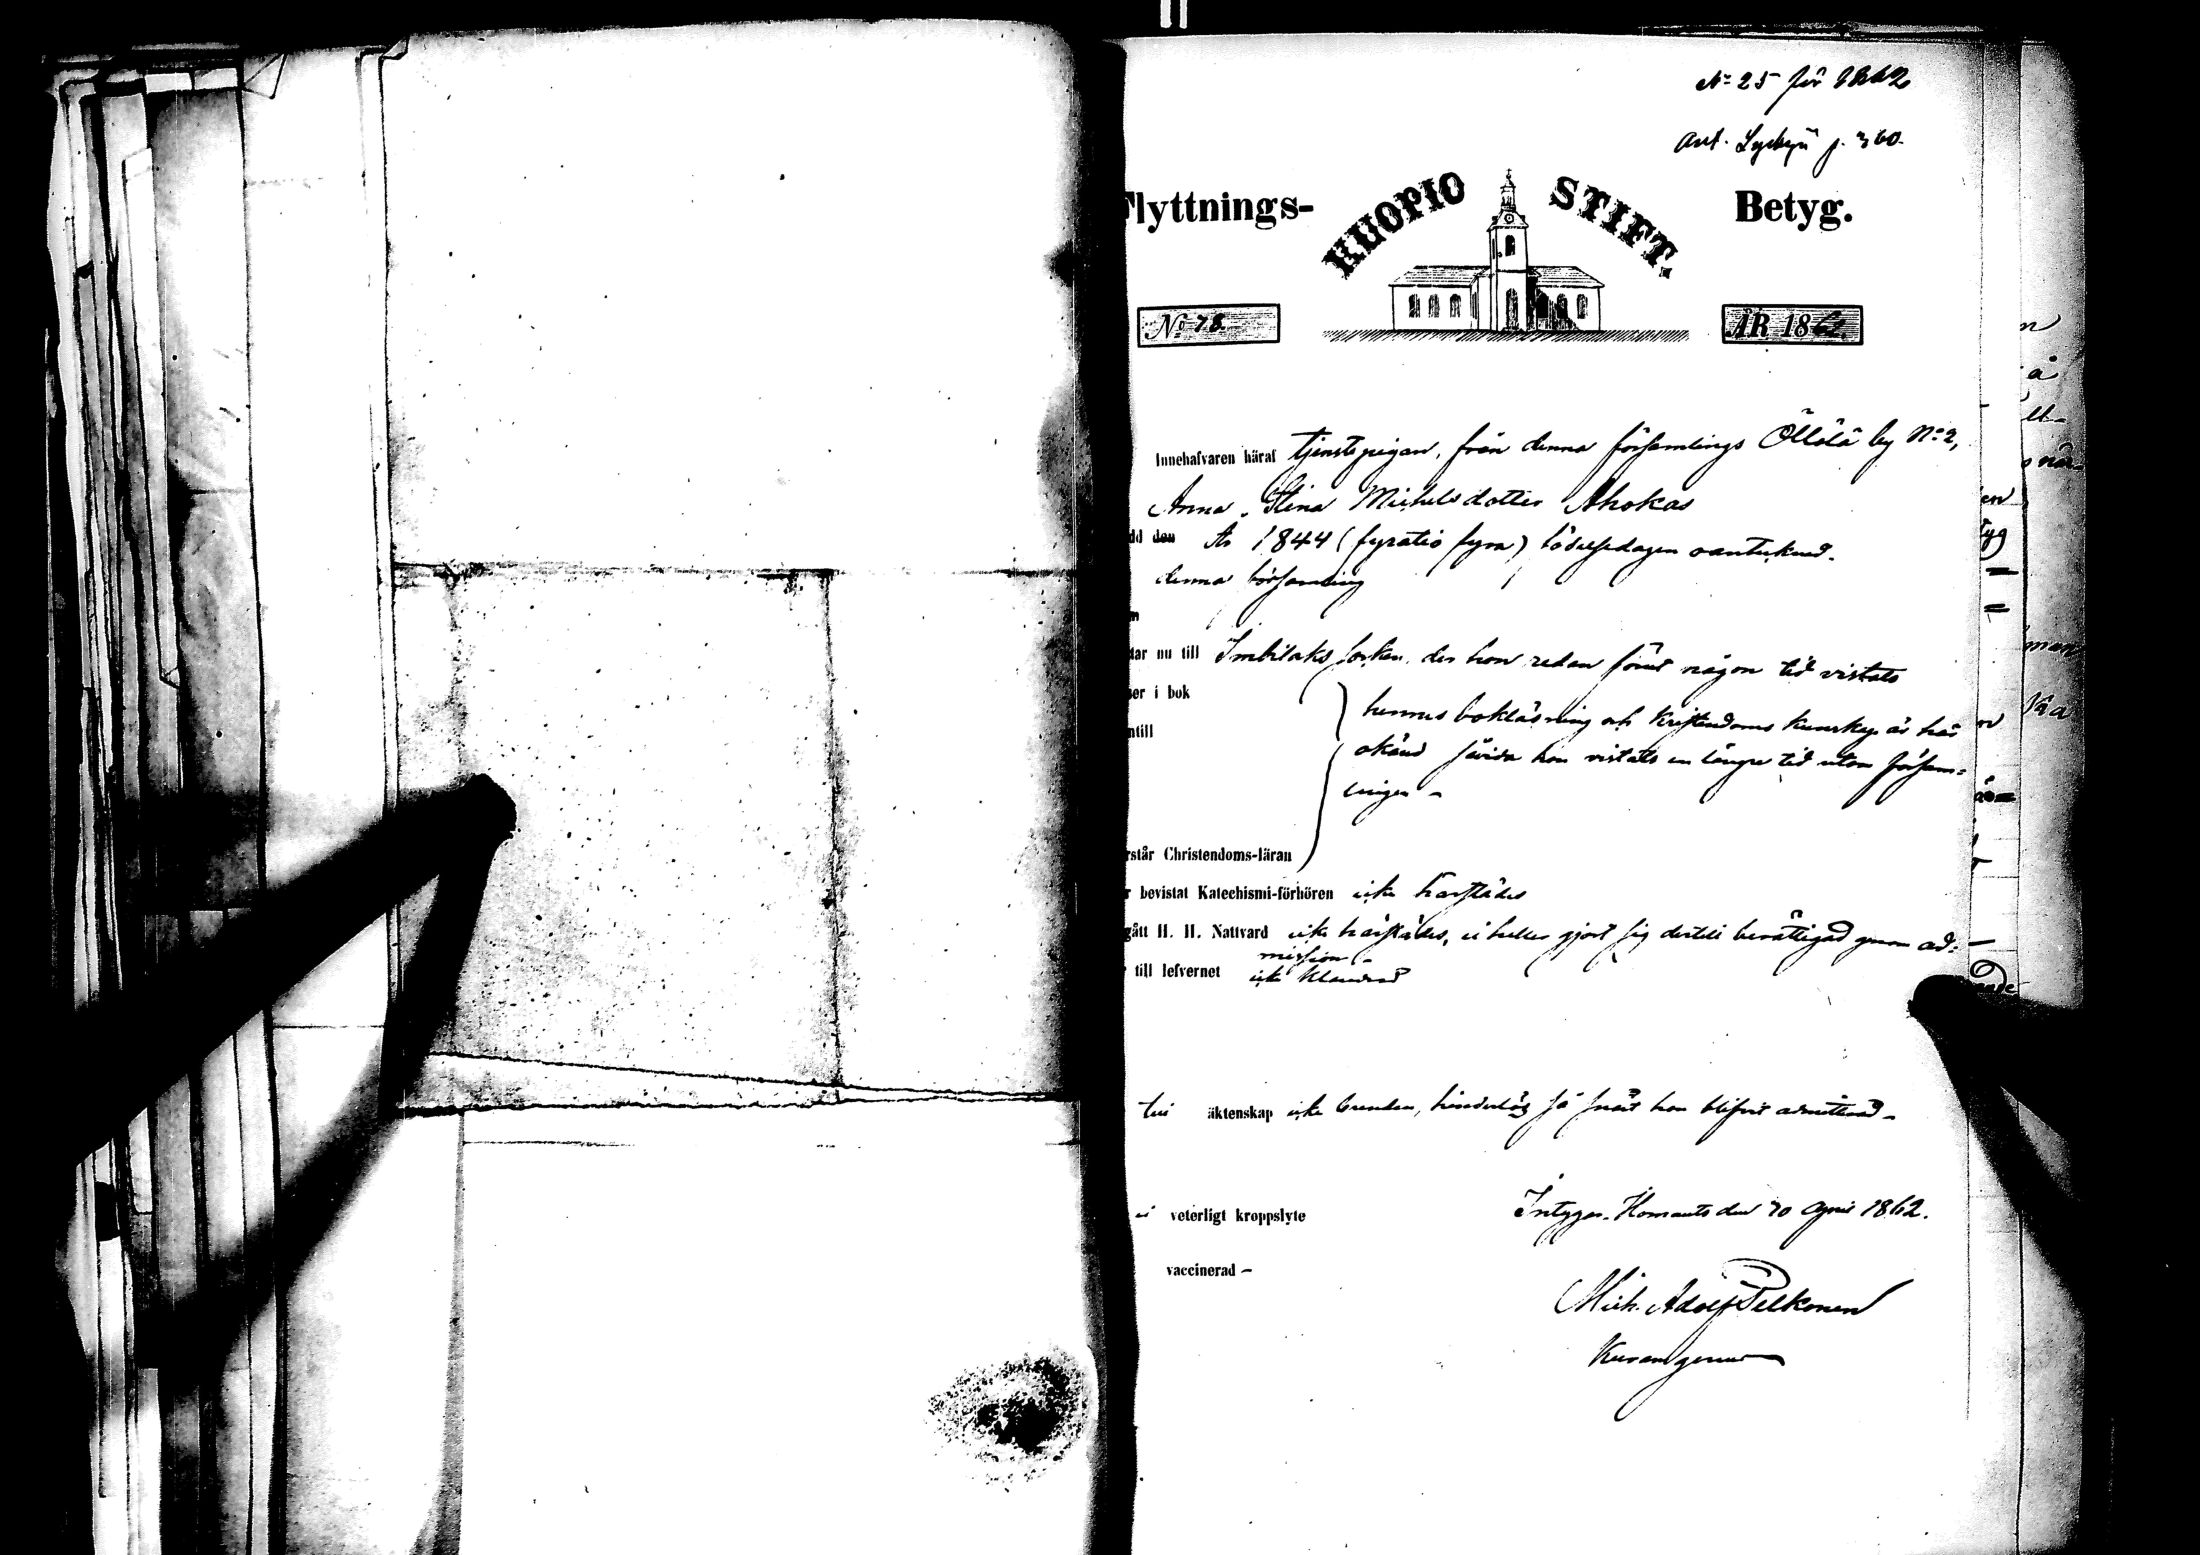 No 25 för 1862
Ant. Syskyä p. 360.
Flyttnings- KUOPIO STIFT. Betyg.
No 78. ÅR 1862.
Innehafvaren häraf tjenstepigan, från denna församlings Öllölä by No 2,
Anna Stina Michelsdotter Ahokas
dd den År 1844 (fyratio fyra) födelsedagen oantecknad.
denna församling
tar nu till Imbilaks socken, der hon redan förut någon tid vistats
ser i bok
hennes bokläsning och Kristendoms kunskap är här
ntill
okänd såvida hon vistats en längre tid utom försam=
lingen –
rstår Christendoms-läran
r bevistat Katechismi-förhören icke härstädes
gått H. H. Nattvard icke härstädes, ei heller gjort sig dertill berättigad genom ad=
mission –
r till lefvernet icke klandrad
till äktenskap icke bunden, hinderlös så snart hon blifvit admitterad –
ei veterligt kroppslyte
Intygar. Ilomants den 10 April 1862.
vaccinerad –
Mich. Adolf Pelkonen